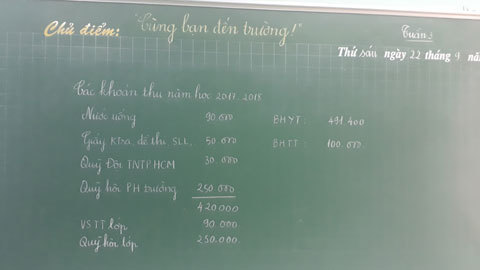 Chủ điểm: "Cùng bạn đến trường!"
Tuần:
Thứ sáu ngày 22 tháng 9 nă
Các khoản thu năm học 2017.2018
Nước uống 90.000 BHYT: 491.400
Giấy Ktra, đề thi, SLL, 50.000 BHTT: 100.000
Quỹ Đội TNTP.HCM 30.000
Quỹ hội PH trường 250.000
420000
VSTT lớp 90.000
Quỹ hội lớp 250.000.